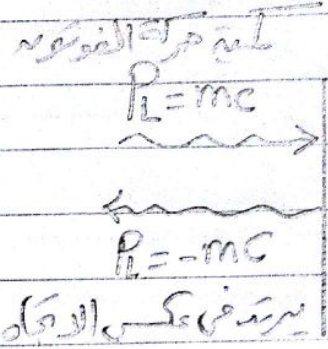 كمية حركة الفوتون
P_L = mc
P_L = -mc
يرتد في عكس الاتجاه